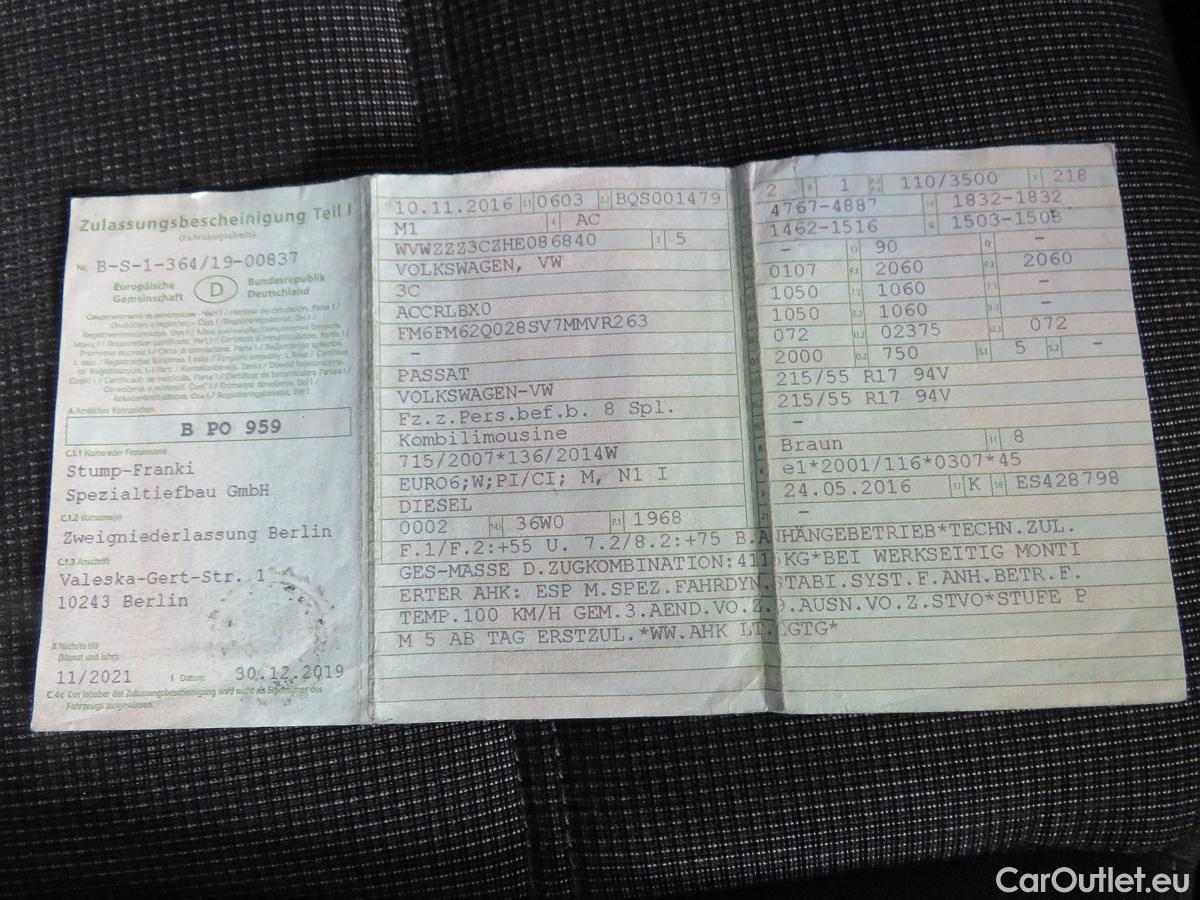 Zulassungsbescheinigung Teil I
(Fahrzeugschein)
Nr. B-S-1-364/19-00837
Europäische Gemeinschaft
D
Bundesrepublik Deutschland
A Amtliches Kennzeichen
B PO 959
C.1.1 Name oder Firmenname
Stump-Franki
Spezialtiefbau GmbH
C.1.2 Vorname(n)
Zweigniederlassung Berlin
C.1.3 Anschrift
Valeska-Gert-Str. 1
10243 Berlin
X Nächste HU
(Monat und Jahr)
11/2021 I Datum: 30.12.2019
C.4c Der Inhaber der Zulassungsbescheinigung wird nicht als Eigentümer des
Fahrzeugs ausgewiesen.
10.11.2016 2.1 0603 2.2 BQS001479
M1 4 AC
WVWZZZ3CZHE086840 3 5
VOLKSWAGEN, VW
3C
ACCRLBX0
FM6FM62Q028SV7MMVR263
–
PASSAT
VOLKSWAGEN-VW
Fz.z.Pers.bef.b. 8 Spl.
Kombilimousine
715/2007*136/2014W
EURO6;W;PI/CI; M, N1 I
DIESEL
0002 14.1 36W0 P.1 1968
2 9 1 P.2 P.4 110/3500 T 218
4767-4887 19 1832-1832
1462-1516 G 1503-1508
– 13 90 Q –
0107 F.1 2060 F.2 2060
1050 7.2 1060 –
1050 8.2 1060 8.3 –
072 U.2 02375 U.3 072
2000 O.2 750 S.1 5 S.2 –
215/55 R17 94V
215/55 R17 94V
–
Braun 11 8
e1*2001/116*0307*45
24.05.2016 17 K 16 ES428798
21 –
F.1/F.2:+55 U. 7.2/8.2:+75 B.ANHÄNGEBETRIEB*TECHN.ZUL.
GES-MASSE D.ZUGKOMBINATION:411 KG*BEI WERKSEITIG MONTI
ERTER AHK: ESP M.SPEZ.FAHRDYN.STABI.SYST.F.ANH.BETR.F.
TEMP.100 KM/H GEM.3.AEND.VO.Z.9.AUSN.VO.Z.STVO*STUFE P
M 5 AB TAG ERSTZUL.*WW.AHK LT.EGTG*
CarOutlet.eu